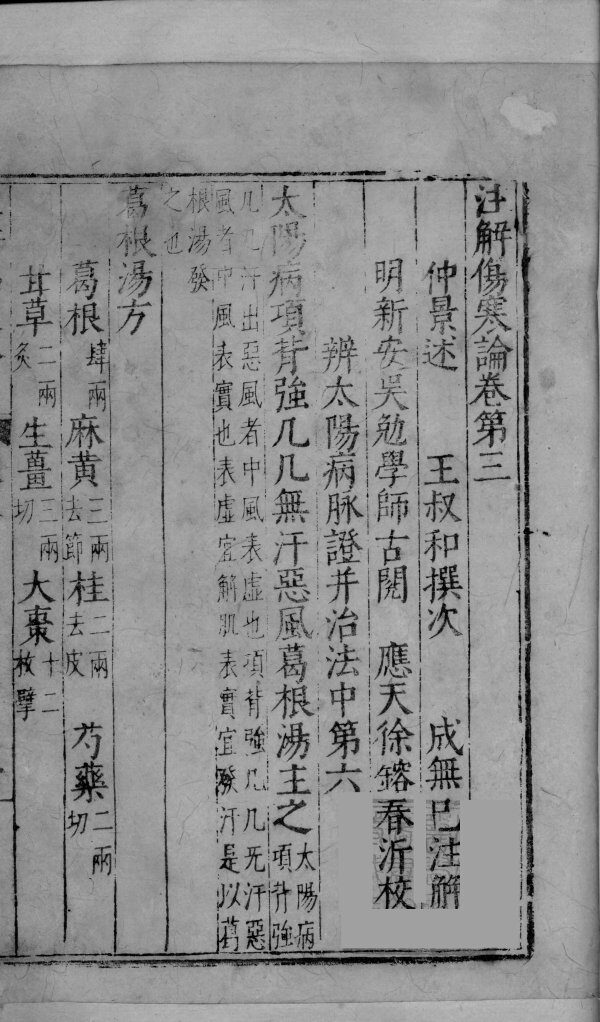 注解傷寒論卷第三
仲景述 王叔和撰次 成無已注解
明新安吳勉學師古閱 應天徐鎔春沂校
辨太陽病脉證并治法中第六
太陽病項背強几几無汗惡風葛根湯主之太陽病項背強
几几汗出惡風者中風表虛也項背強几几无汗惡
風者中風表實也表虛宜解肌表實宜發汗是以葛
根湯發
之也
葛根湯方
葛根肆兩 麻黃三兩去節 桂二兩去皮 芍藥二兩切
甘草二兩炙 生薑三兩切 大棗十二枚擘